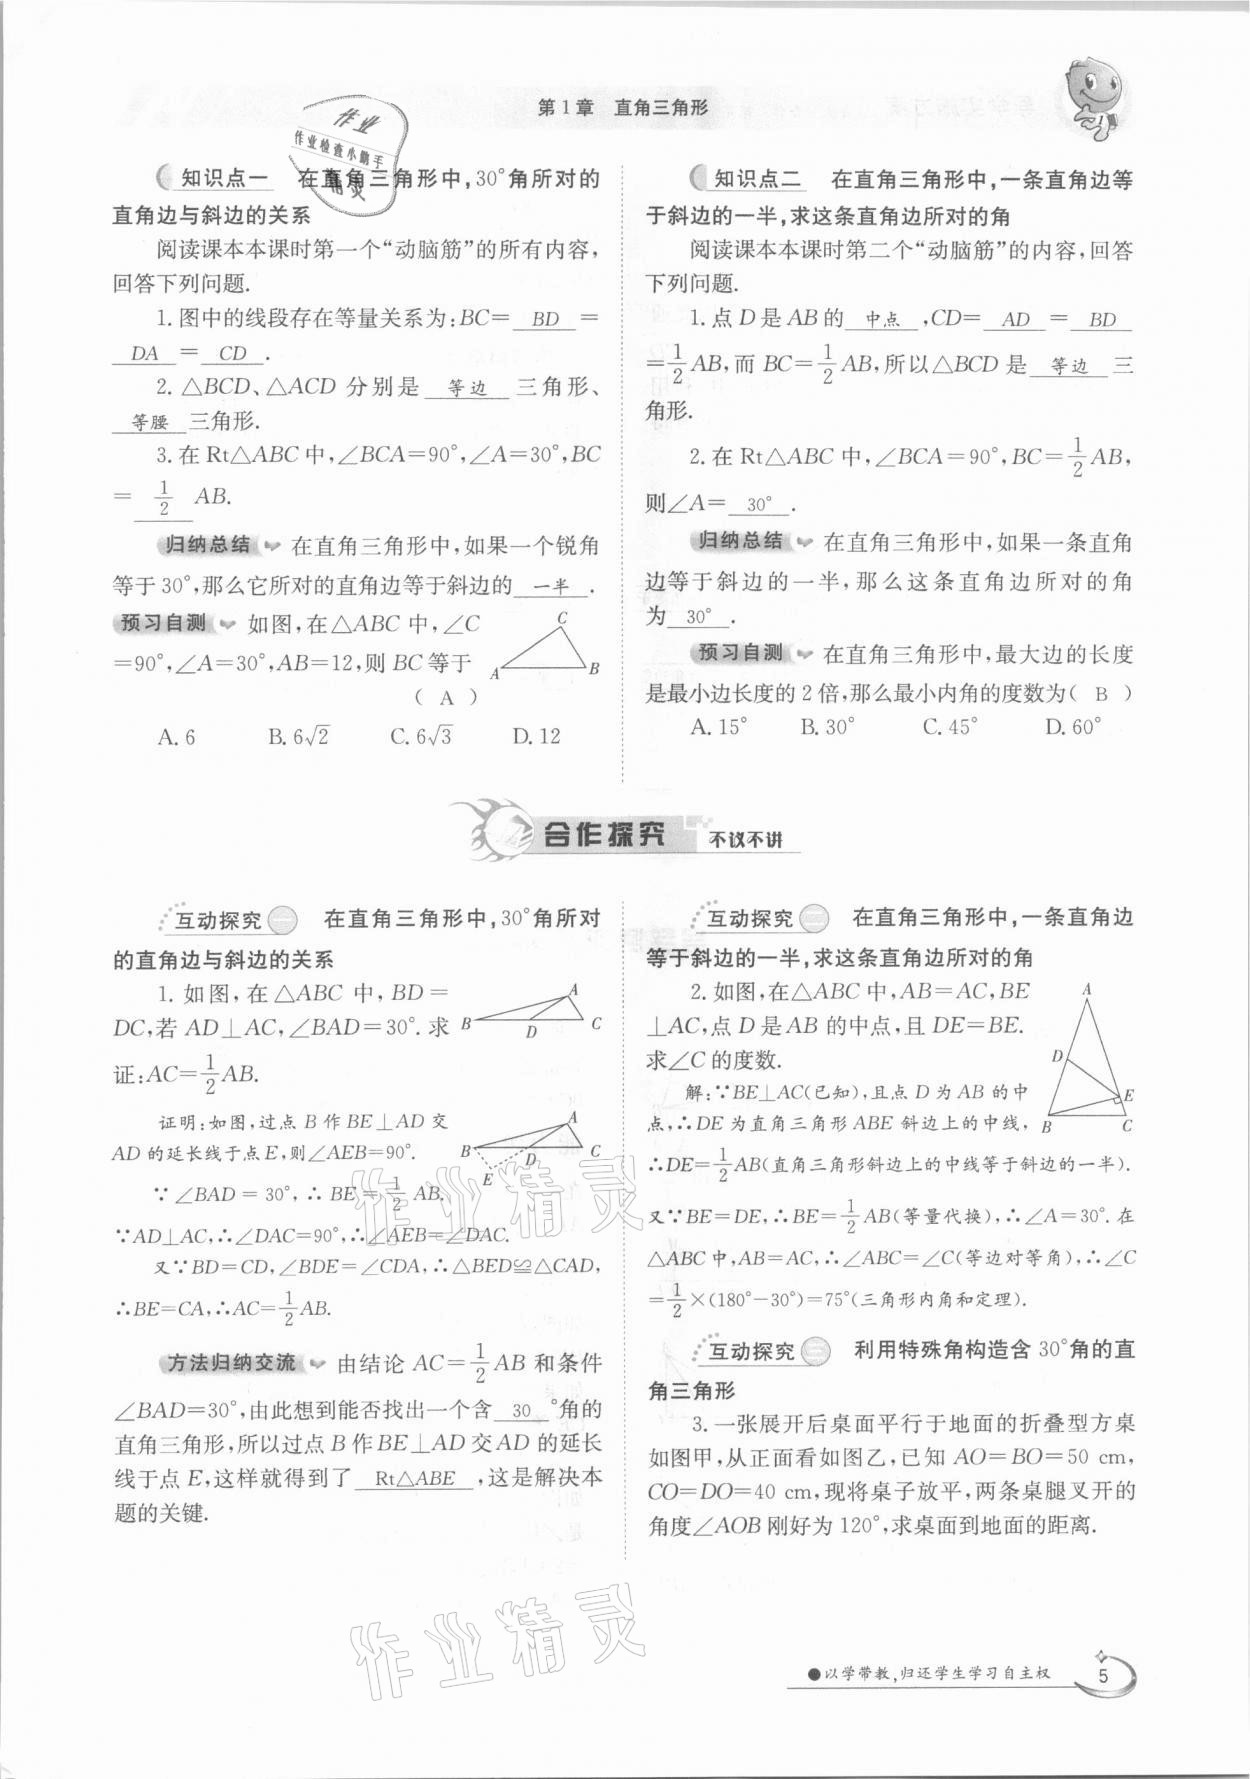 第1章 直角三角形
作业
作业检查小助手
精灵
知识点一 在直角三角形中,30°角所对的
直角边与斜边的关系
阅读课本本课时第一个“动脑筋”的所有内容,
回答下列问题.
1.图中的线段存在等量关系为:BC= BD =
DA = CD .
2.△BCD、△ACD 分别是 等边 三角形、
等腰 三角形.
3.在 Rt△ABC 中,∠BCA=90°,∠A=30°,BC
= 1/2 AB.
归纳总结 在直角三角形中,如果一个锐角
等于 30°,那么它所对的直角边等于斜边的 一半 .
预习自测 如图,在△ABC 中,∠C
=90°,∠A=30°,AB=12,则 BC 等于
( A )
A C B
A.6 B.6√2 C.6√3 D.12
知识点二 在直角三角形中,一条直角边等
于斜边的一半,求这条直角边所对的角
阅读课本本课时第二个“动脑筋”的内容,回答
下列问题.
1.点 D 是 AB 的 中点 ,CD= AD = BD
=1/2AB,而 BC=1/2AB,所以△BCD 是 等边 三
角形.
2.在 Rt△ABC 中,∠BCA=90°,BC=1/2AB,
则∠A= 30° .
归纳总结 在直角三角形中,如果一条直角
边等于斜边的一半,那么这条直角边所对的角
为 30° .
预习自测 在直角三角形中,最大边的长度
是最小边长度的 2 倍,那么最小内角的度数为( B )
A.15° B.30° C.45° D.60°
合作探究 不议不讲
互动探究 一 在直角三角形中,30°角所对
的直角边与斜边的关系
1.如图,在△ABC 中,BD=
DC,若 AD⊥AC,∠BAD=30°.求
证:AC=1/2AB.
A B D C
证明:如图,过点 B 作 BE⊥AD 交
AD 的延长线于点 E,则∠AEB=90°.
A B D C E
∵∠BAD=30°,∴BE=1/2AB.
∵AD⊥AC,∴∠DAC=90°,∴∠AEB=∠DAC.
又∵BD=CD,∠BDE=∠CDA,∴△BED≌△CAD,
∴BE=CA,∴AC=1/2AB.
方法归纳交流 由结论 AC=1/2AB 和条件
∠BAD=30°,由此想到能否找出一个含 30 °角的
直角三角形,所以过点 B 作 BE⊥AD 交 AD 的延长
线于点 E,这样就得到了 Rt△ABE ,这是解决本
题的关键.
互动探究 二 在直角三角形中,一条直角边
等于斜边的一半,求这条直角边所对的角
2.如图,在△ABC 中,AB=AC,BE
⊥AC,点 D 是 AB 的中点,且 DE=BE.
求∠C 的度数.
A D E B C
解:∵BE⊥AC(已知),且点 D 为 AB 的中
点,∴DE 为直角三角形 ABE 斜边上的中线,
∴DE=1/2AB(直角三角形斜边上的中线等于斜边的一半).
又∵BE=DE,∴BE=1/2AB(等量代换),∴∠A=30°.在
△ABC 中,AB=AC,∴∠ABC=∠C(等边对等角),∴∠C
=1/2×(180°-30°)=75°(三角形内角和定理).
互动探究 三 利用特殊角构造含 30°角的直
角三角形
3.一张展开后桌面平行于地面的折叠型方桌
如图甲,从正面看如图乙,已知 AO=BO=50 cm,
CO=DO=40 cm,现将桌子放平,两条桌腿叉开的
角度∠AOB 刚好为 120°,求桌面到地面的距离.
作业精灵
作业精灵
●以学带教,归还学生学习自主权
5